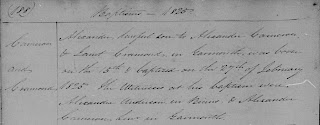 188
Baptisms - 1825
Cameron Alexander lawful son to Alexander Cameron
& Janet Cramond, in Earnworth, was born
and on the 15th & baptized on the 27th of February
Cramond 1825. The Witnesses at his baptism were
Alexander Anderson in & Alexander
Cameron in Earnworth.